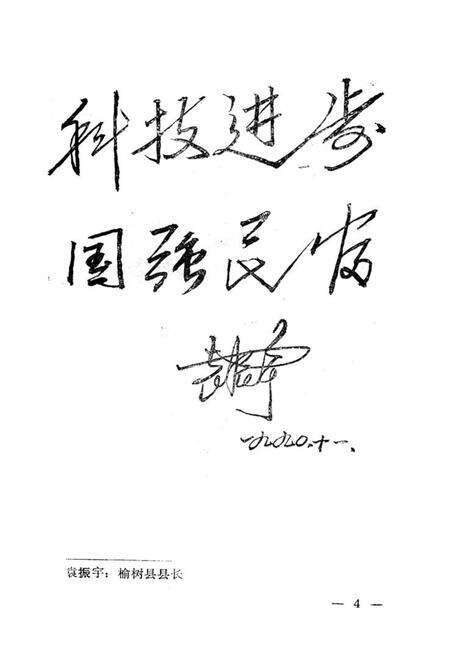 科技进步
国强民富
袁振宇
一九九〇.十一.
袁振宇：榆树县县长
— 4 —